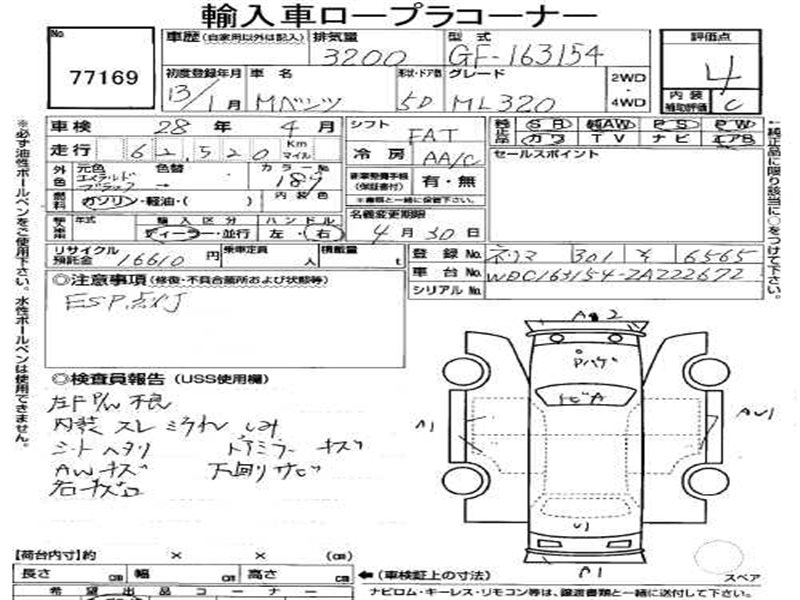 輸入車ロープラコーナー
No 77169
車歴(自家用以外は記入) 排気量 3200 型式 GF-163154 評価点 4
初度登録年月 13/1月 車名 Mベンツ 形状・ドア数 5D グレード ML320 2WD・4WD 内装補助評価 C
車検 28年4月 シフト FAT 純正品 SR 純AW PS PW
カワ TV ナビ エアB
走行 62,520 Km マイル 冷房 AA/C セールスポイント
外色 元色 エメラルド 色替 カラーNo 189
ブラック
新車整備手帳(保証書付) 有・無
燃料 ガソリン・軽油・( ) 内装色
※書類と一緒に保管下さい。
輸入車 年式 輸入区分 ディーラー・並行 ハンドル 左・右 名義変更期限 4月30日
リサイクル預託金 16610円 乗車定員 人 積載量 t 登録No. ネリマ 301 そ 6565
車台No. WDC163154-2A222672
シリアルNo.
◎注意事項(修復・不具合箇所および状態等)
ESP点灯
◎検査員報告(USS使用欄)
左F P/W 不良
内装 スレ ミラワレ しみ
シート ヘタリ ドアミラー キズ
AWキズ 下回りサビ
各キズ凹
A 2
Pハゲ
トビA
A1
AW1
U1
A1
スペア
【荷台内寸】約 × × (cm)
長さ cm 幅 cm 高さ cm ←(車検証上の寸法)
希望出品コーナー ナビロム・キーレス・リモコン等は、譲渡書類と一緒に送付して下さい。
※必ず油性ボールペンをご使用下さい。水性ボールペンは使用できません。
←純正品に限り該当に○をつけて下さい。